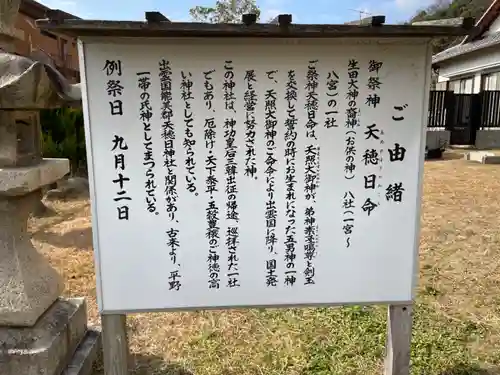 ご由緒
御祭神　天穂日命
あめのほひのみこと
生田大神の裔神（お供の神）　八社（一宮〜
八宮）の一社
ご祭神天穂日命は、天照大御神が、弟神素戔嗚尊と剣玉
を交換して誓約の時にお生まれになった五男神の一神
で、天照大御神のご命令により出雲国に降り、国土発
展と経営に努力された神。
この神社は、神功皇后三韓出征の帰途、巡拝された一社
でもあり、厄除け・天下泰平・五穀豊穣のご神徳の高
い神社としても知られている。
出雲国能美郡天穂日神社と関係があり、古来より、平野
一帯の氏神としてまつられている。
例祭日　九月十二日